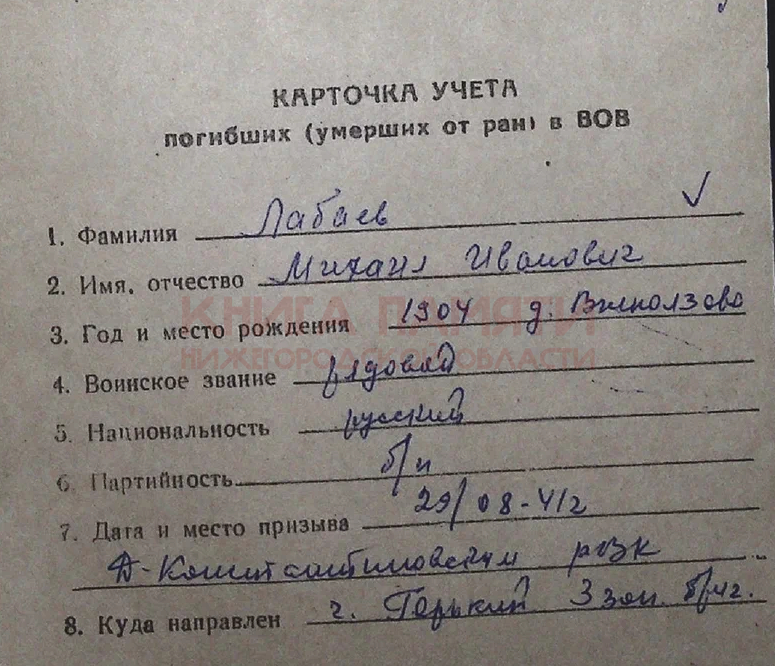 КАРТОЧКА УЧЕТА
погибших (умерших от ран) в ВОВ
1. Фамилия Лабаев
2. Имя, отчество Михаил Иванович
КНИГА ПАМЯТИ
3. Год и место рождения 1904 д.
НИЖЕГОРОДСКОЙ ОБЛАСТИ
4. Воинское звание рядовой
5. Национальность русский
6. Партийность б/п
7. Дата и место призыва 29/08-41г
Д-Константиновским рвк
8. Куда направлен г. Горький